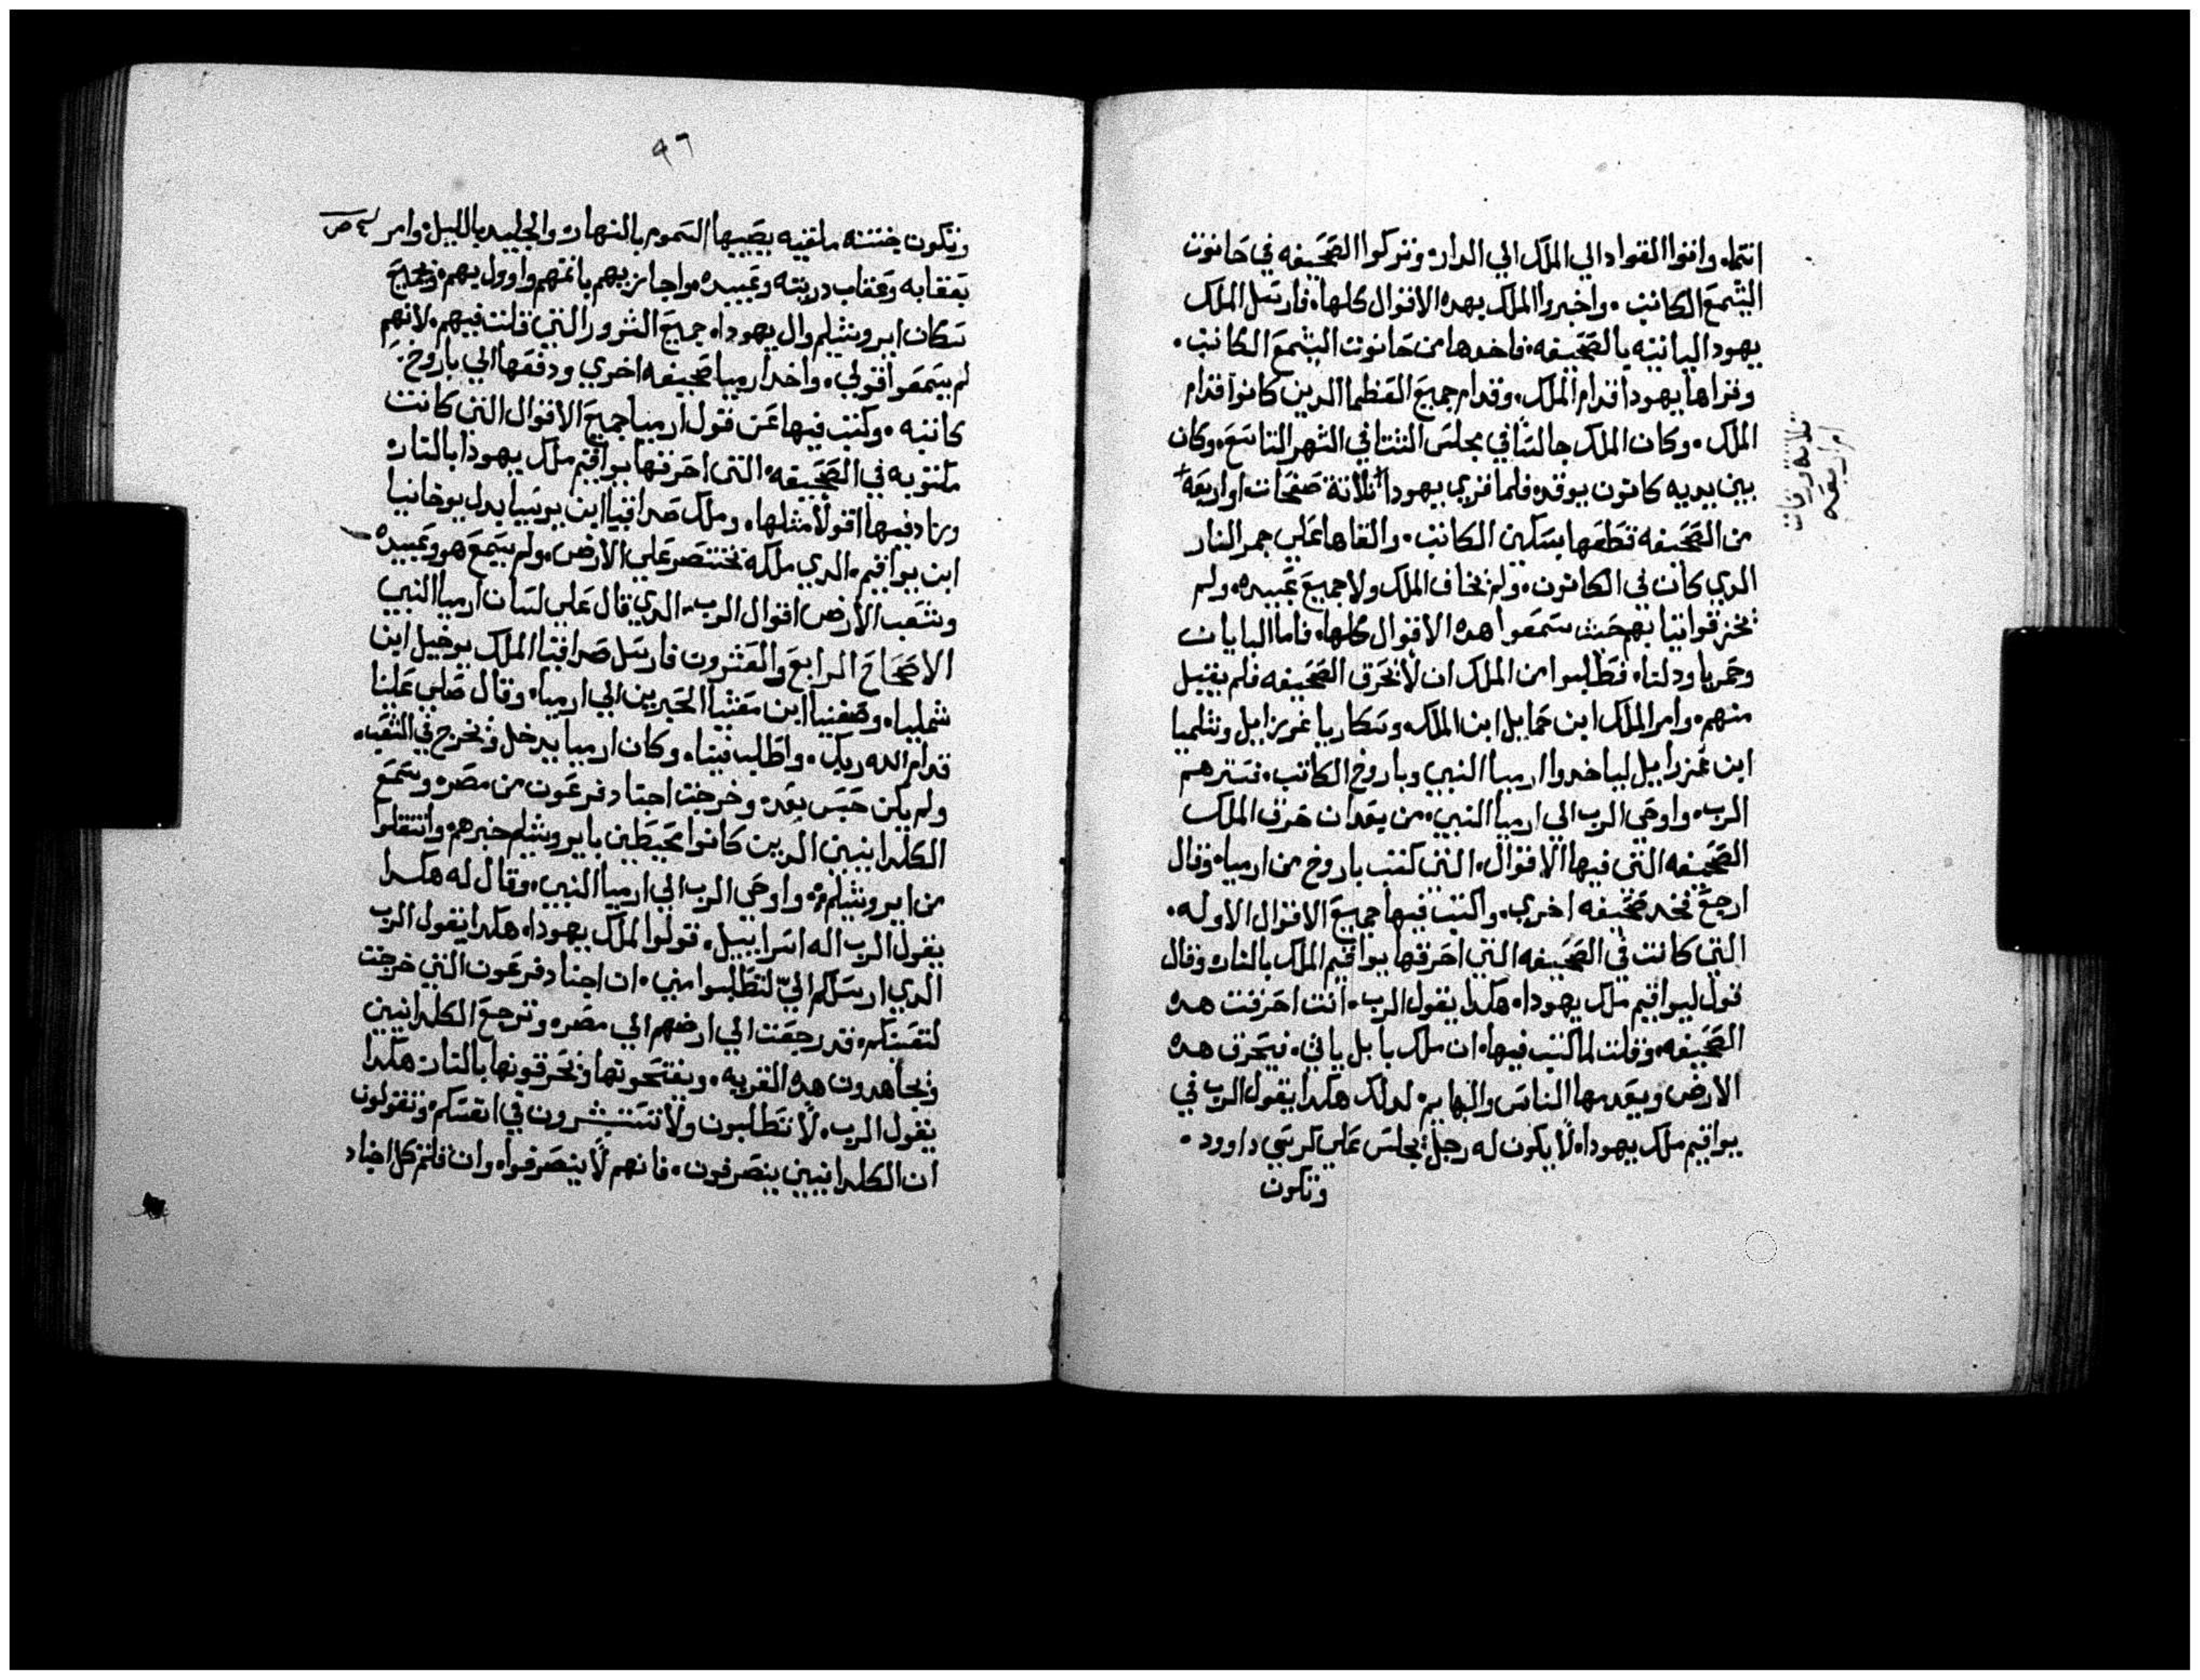 انتما. واتوا القواد الي الملك الي الدار. وتركوا الصحيفه في حانوت
اليشمع الكاتب. واخبروا الملك بهده الاقوال كلها. فارسل الملك
يهودا لياتيه بالصحيفه. فاخدها من حانوت اليشمع الكاتب.
وقراها يهودا قدام الملك. وقدام جميع العظما الدين كانوا قدام
الملك. وكان الملك جالسا في مجلس الشتا في الشهر التاسع. وكان
بين يديه كانون يوقد. فلما قري يهودا ثلاثة صفحات او اربعه
من الصحيفه قطعها بسكين الكاتب. والقاها علي جمر النار
الدي كان في الكانون. ولم يخاف الملك ولا جميع عبيده. ولم
يخرقوا تيابهم حيث سمعوا هده الاقوال كلها. فاما
ودلتا. فطلبوا من الملك ان لا تحرق الصحيفه فلم يقبل
منهم. وامر الملك ابن الملك. وشلميا
ابن لياخدوا ارميا النبي وباروخ الكاتب. فسترهم
الرب. واوحي الرب الي ارميا النبي. من بعد ان حرق الملك
الصحيفه التي فيها الاقوال. التي كتب باروخ من ارميا. وقال
ارجع فخد صحيفه اخري. واكتب فيها جميع الاقوال الاوله.
التي كانت في الصحيفه التي احرقها يواقيم الملك بالنار. وقال
قول ليواقيم ملك يهودا. هكدا يقول الرب. انت احرقت هده
الصحيفه. وقلت لما كتبت فيها. ان ملك بابل ياتي. فيحرق هده
الارض ويعدمها الناس والبهايم. لدلك هكدا يقول الرب في
يواقيم ملك يهودا. لا يكون له رجل يجلس علي كرسي داوود.
وتكون
ثلاثة ورقات
ام اربعه
٩٦
وتكون جتته ملقيه يصيبها السموم بالنهار. والجليد بالليل. وامر
بعقابه وعقاب دريته وعبيده. واجازيهم باتمهم واوول بهم. وبجميع
سكان ايروشليم وال يهودا. جميع الشرور التي قلت فيهم. لانهم
لم يسمعوا قولي. واخد ارميا صحيفه اخري ودفعها الي باروخ.
كاتبه. وكتب فيها عن قول ارميا جميع الاقوال التي كانت
مكتوبه في الصحيفه. التي احرقها يواقيم ملك يهودا بالنار
وزاد فيها اقولا مثلها. وملك صداقيا ابن يوسيا بدل يوخانيا
ابن يواقيم. الدي ملكه بختنصر علي الارض. ولم يسمع هو وعبيده
وشعب الارض اقوال الرب. الدي قال علي لسان ارميا النبي
الاصحاح الرابع والعشرون فارسل صداقيا الملك يوخيل ابن
شمليا. وصفنيا ابن معشيا الحبرين الي ارميا. وقال صلي علينا
قدام الله ربك. واطلب فينا. وكان ارميا يدخل ويخرج في الشعب.
ولم يكن حبس بعد. وخرجت اجناد فرعون من مصر. وسمع
الكلدانيين الدين كانوا محيطين بايروشليم خبرهم. وانتقلوا
من ايروشليم. واوحي الرب الي ارميا النبي. وقال له هكدا
يقول الرب اله اسراييل. قولوا لملك يهودا. هكدا يقول الرب
الدي ارسلكم الي لتطلبوا مني. ان اجناد فرعون التي خرجت
لتعينكم. قد رجعت الي ارضهم الي مصر. وترجع الكلدانيين
ويجاهدون هده القريه. ويفتحونها ويحرقونها بالنار. هكدا
يقول الرب. لا تطلبون ولا تستبشرون في انفسكم. وتقولون
ان الكلدانيين ينصرفون. فانهم لا ينصرفوا. وان قلتم كل اجناد